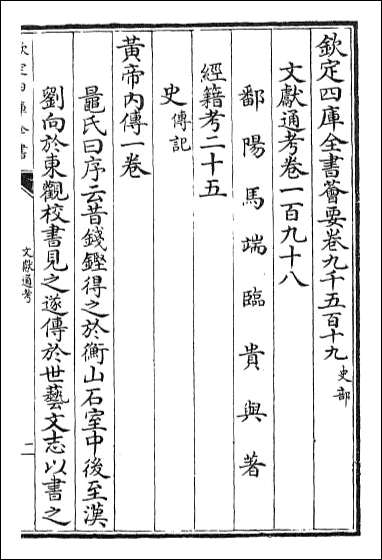 欽定四庫全書薈要卷九千五百十九 史部
文獻通考卷一百九十八
鄱陽馬端臨貴與著
經籍考二十五
史 傳記
黃帝內傳一卷
鼂氏曰序云昔錢鏗得之於衡山石室中後至漢
劉向於東觀校書見之遂傳於世藝文志以書之
欽定四庫全書
文獻通考